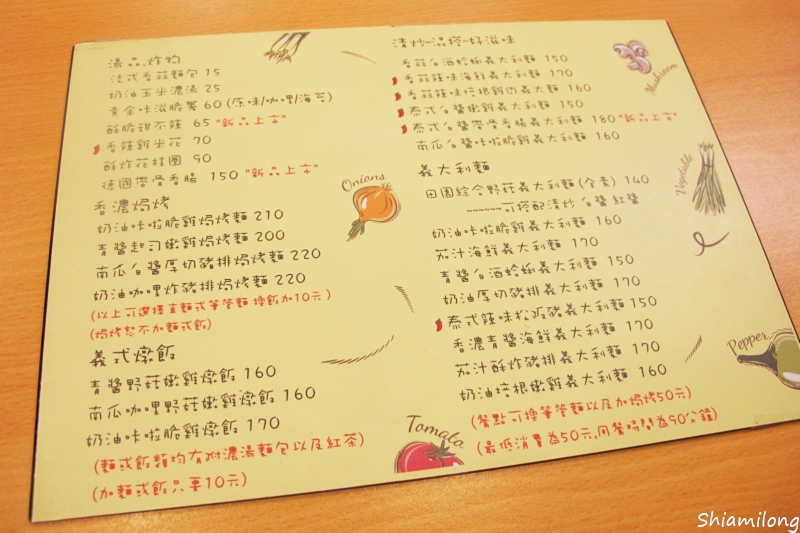 湯品.炸物
法式香蒜麵包 15
奶油玉米濃湯 25
黃金咔滋脆薯 60 (原味/咖哩/海苔)
酥脆甜不辣 65 "新品上市"
香辣雞米花 70
酥炸花枝圈 90
德國帶骨香腸 150 "新品上市"
香濃焗烤
奶油咔啦脆雞焗烤麵 210
青醬起司嫩雞焗烤麵 200
南瓜白醬厚切豬排焗烤麵 220
奶油咖哩炸豬排焗烤麵 220
(以上可選擇直麵或筆管麵 換飯加10元)
(焗烤恕不加麵或飯)
義式燉飯
青醬野菇嫩雞燉飯 160
南瓜咖哩野菇嫩雞燉飯 160
奶油咔啦脆雞燉飯 170
(麵或飯類均有附濃湯麵包以及紅茶)
(加麵或飯只要10元)
Onions
清炒~混搭~好滋味
香蒜白酒蛤蜊義大利麵 150
香蒜辣味海鮮義大利麵 170
香蒜辣味培根雞肉義大利麵 160
泰式白醬嫩雞義大利麵 150
泰式白醬帶骨香腸義大利麵 180 "新品上市"
南瓜白醬咔啦脆雞義大利麵 160
義大利麵
田園綜合野菇義大利麵(全素) 140
~~~~~~可搭配清炒 白醬 紅醬
奶油咔啦脆雞義大利麵 160
茄汁海鮮義大利麵 170
青醬白酒蛤蜊義大利麵 150
奶油厚切豬排義大利麵 170
泰式辣味松阪豬義大利麵 150
香濃青醬海鮮義大利麵 170
茄汁酥炸豬排義大利麵 170
奶油培根嫩雞義大利麵 160
(餐點可換筆管麵以及加焗烤50元)
(最低消費為50元,用餐時間為90分鐘)
Mushroom
Vegetable
Pepper
Tomato
Shiamilong